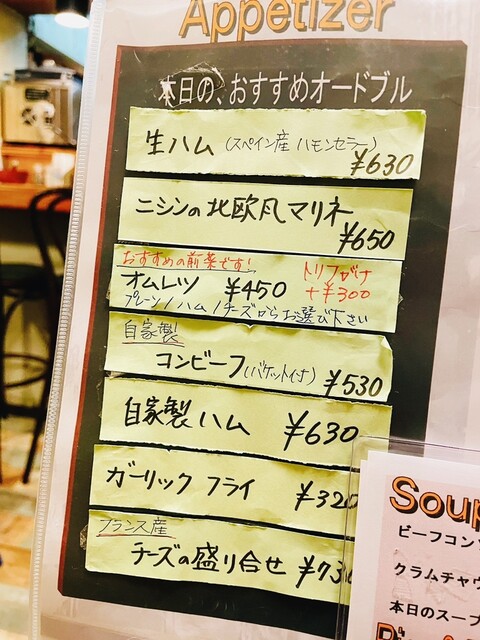 Appetizer
本日の、おすすめオードブル
生ハム (スペイン産 ハモンセラー)
¥630
ニシンの北欧風マリネ
¥650
おすすめの前菜です!
オムレツ ¥450
トリフがけ
+¥300
プレーン/ハム/チーズからお選び下さい
自家製
コンビーフ(バケット付) ¥530
自家製ハム ¥630
ガーリック フライ ¥320
フランス産
チーズの盛り合せ ¥73
Soup
ビーフコン
クラムチャウ
本日のスープ